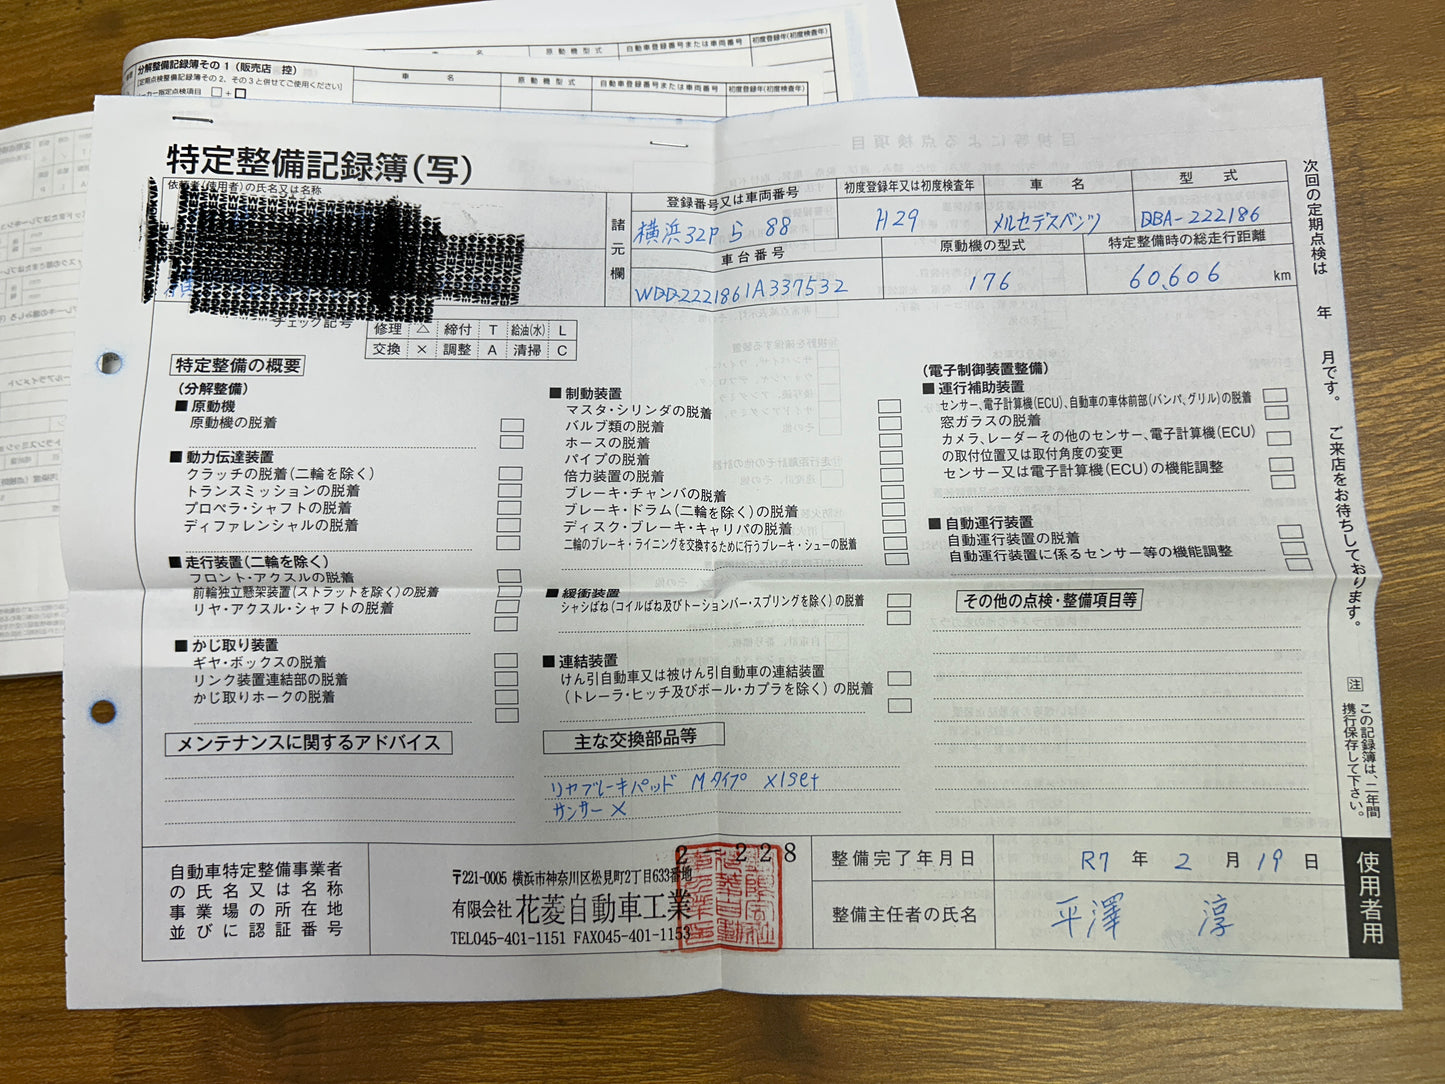 分解整備記録簿その1(販売店 控)
[定期点検整備記録簿その2、その3と併せてご使用ください]
メーカー指定点検項目 □+□
車 名
原動機型式
自動車登録番号または車両番号
初度登録年(初度検査年)
車 名
原動機型式
自動車登録番号または車両番号
初度登録年(初度検査年)
特定整備記録簿(写)
依頼者(使用者)の氏名又は名称
諸元欄
登録番号又は車両番号
横浜32P ら 88
初度登録年又は初度検査年
H29
車 名
メルセデスベンツ
型 式
DBA-222186
車台番号
WDD2221861A337532
原動機の型式
176
特定整備時の総走行距離
60,606 km
チェック記号
修理 △ 締付 T 給油(水) L
交換 × 調整 A 清掃 C
特定整備の概要
(分解整備)
■ 原動機
原動機の脱着
■ 動力伝達装置
クラッチの脱着(二輪を除く)
トランスミッションの脱着
プロペラ・シャフトの脱着
ディファレンシャルの脱着
■ 走行装置(二輪を除く)
フロント・アクスルの脱着
前輪独立懸架装置(ストラットを除く)の脱着
リヤ・アクスル・シャフトの脱着
■ かじ取り装置
ギヤ・ボックスの脱着
リンク装置連結部の脱着
かじ取りホークの脱着
■ 制動装置
マスタ・シリンダの脱着
バルブ類の脱着
ホースの脱着
パイプの脱着
倍力装置の脱着
ブレーキ・チャンバの脱着
ブレーキ・ドラム(二輪を除く)の脱着
ディスク・ブレーキ・キャリパの脱着
二輪のブレーキ・ライニングを交換するために行うブレーキ・シューの脱着
■ 緩衝装置
シャシばね(コイルばね及びトーションバー・スプリングを除く)の脱着
■ 連結装置
けん引自動車又は被けん引自動車の連結装置
(トレーラ・ヒッチ及びボール・カプラを除く)の脱着
(電子制御装置整備)
■ 運行補助装置
センサー、電子計算機(ECU)、自動車の車体前部(バンパ、グリル)の脱着
窓ガラスの脱着
カメラ、レーダーその他のセンサー、電子計算機(ECU)
の取付位置又は取付角度の変更
センサー又は電子計算機(ECU)の機能調整
■ 自動運行装置
自動運行装置の脱着
自動運行装置に係るセンサー等の機能調整
その他の点検・整備項目等
メンテナンスに関するアドバイス
主な交換部品等
リヤブレーキパッド Mタイプ ×1set
サンサー ×
自動車特定整備事業者
の氏名又は名称
事業場の所在地
並びに認証番号
2-228
〒221-0005 横浜市神奈川区松見町2丁目633番地
有限会社 花菱自動車工業
TEL045-401-1151 FAX045-401-1153
整備完了年月日
R7 年 2 月 19 日
整備主任者の氏名
平澤 淳
次回の定期点検は 年 月です。ご来店をお待ちしております。
注 この記録簿は、二年間
携行保存して下さい。
使用者用